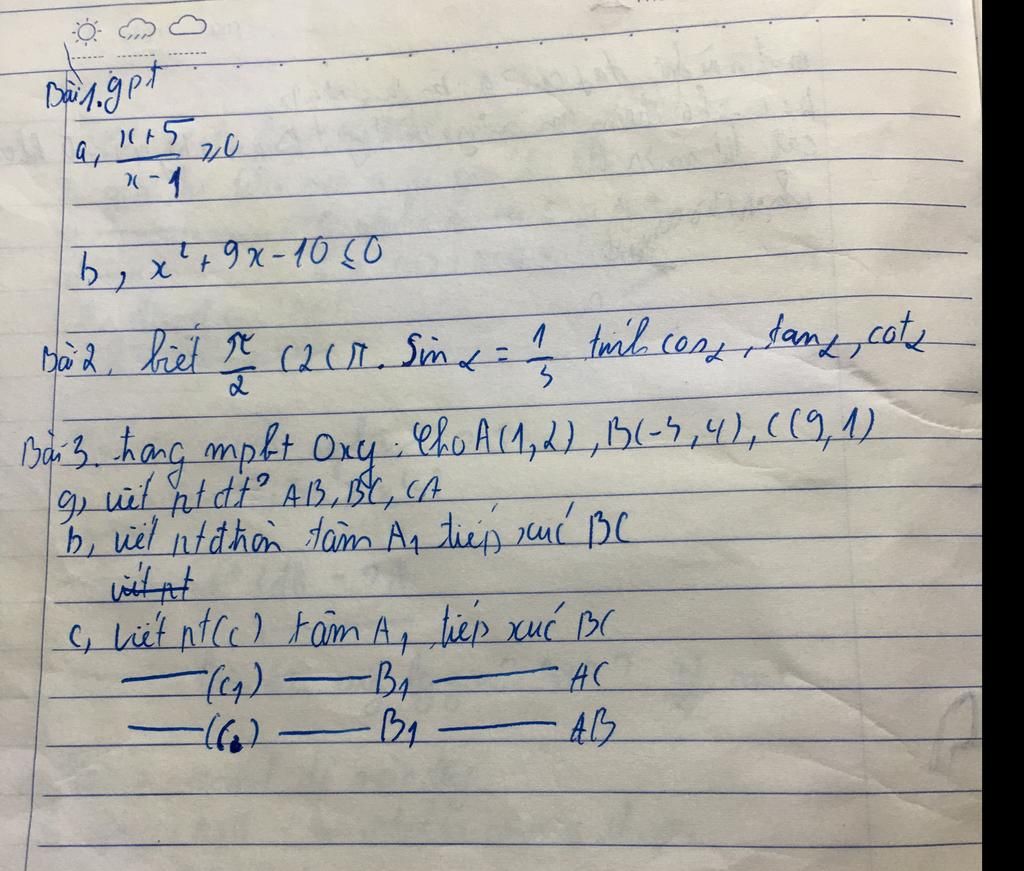 Bài 1. gpt
a, x+5/x-1 ≥0
b, x²+9x-10≤0
Bài 2. biết π/2 <2<π. Sin α = 1/3 tính cos α, tan α, cot α
Bài 3. trong mpht Oxy. Cho A(1,2), B(-3,4), C(9,1)
a, viết pt đt² AB, BC, CA
b, viết pt đtròn tâm A, tiếp xúc BC
viết pt
c, viết pt(c) tâm A, tiếp xúc BC
—— (C₁) —— B, —— AC
—— (C₂) —— B, —— AB